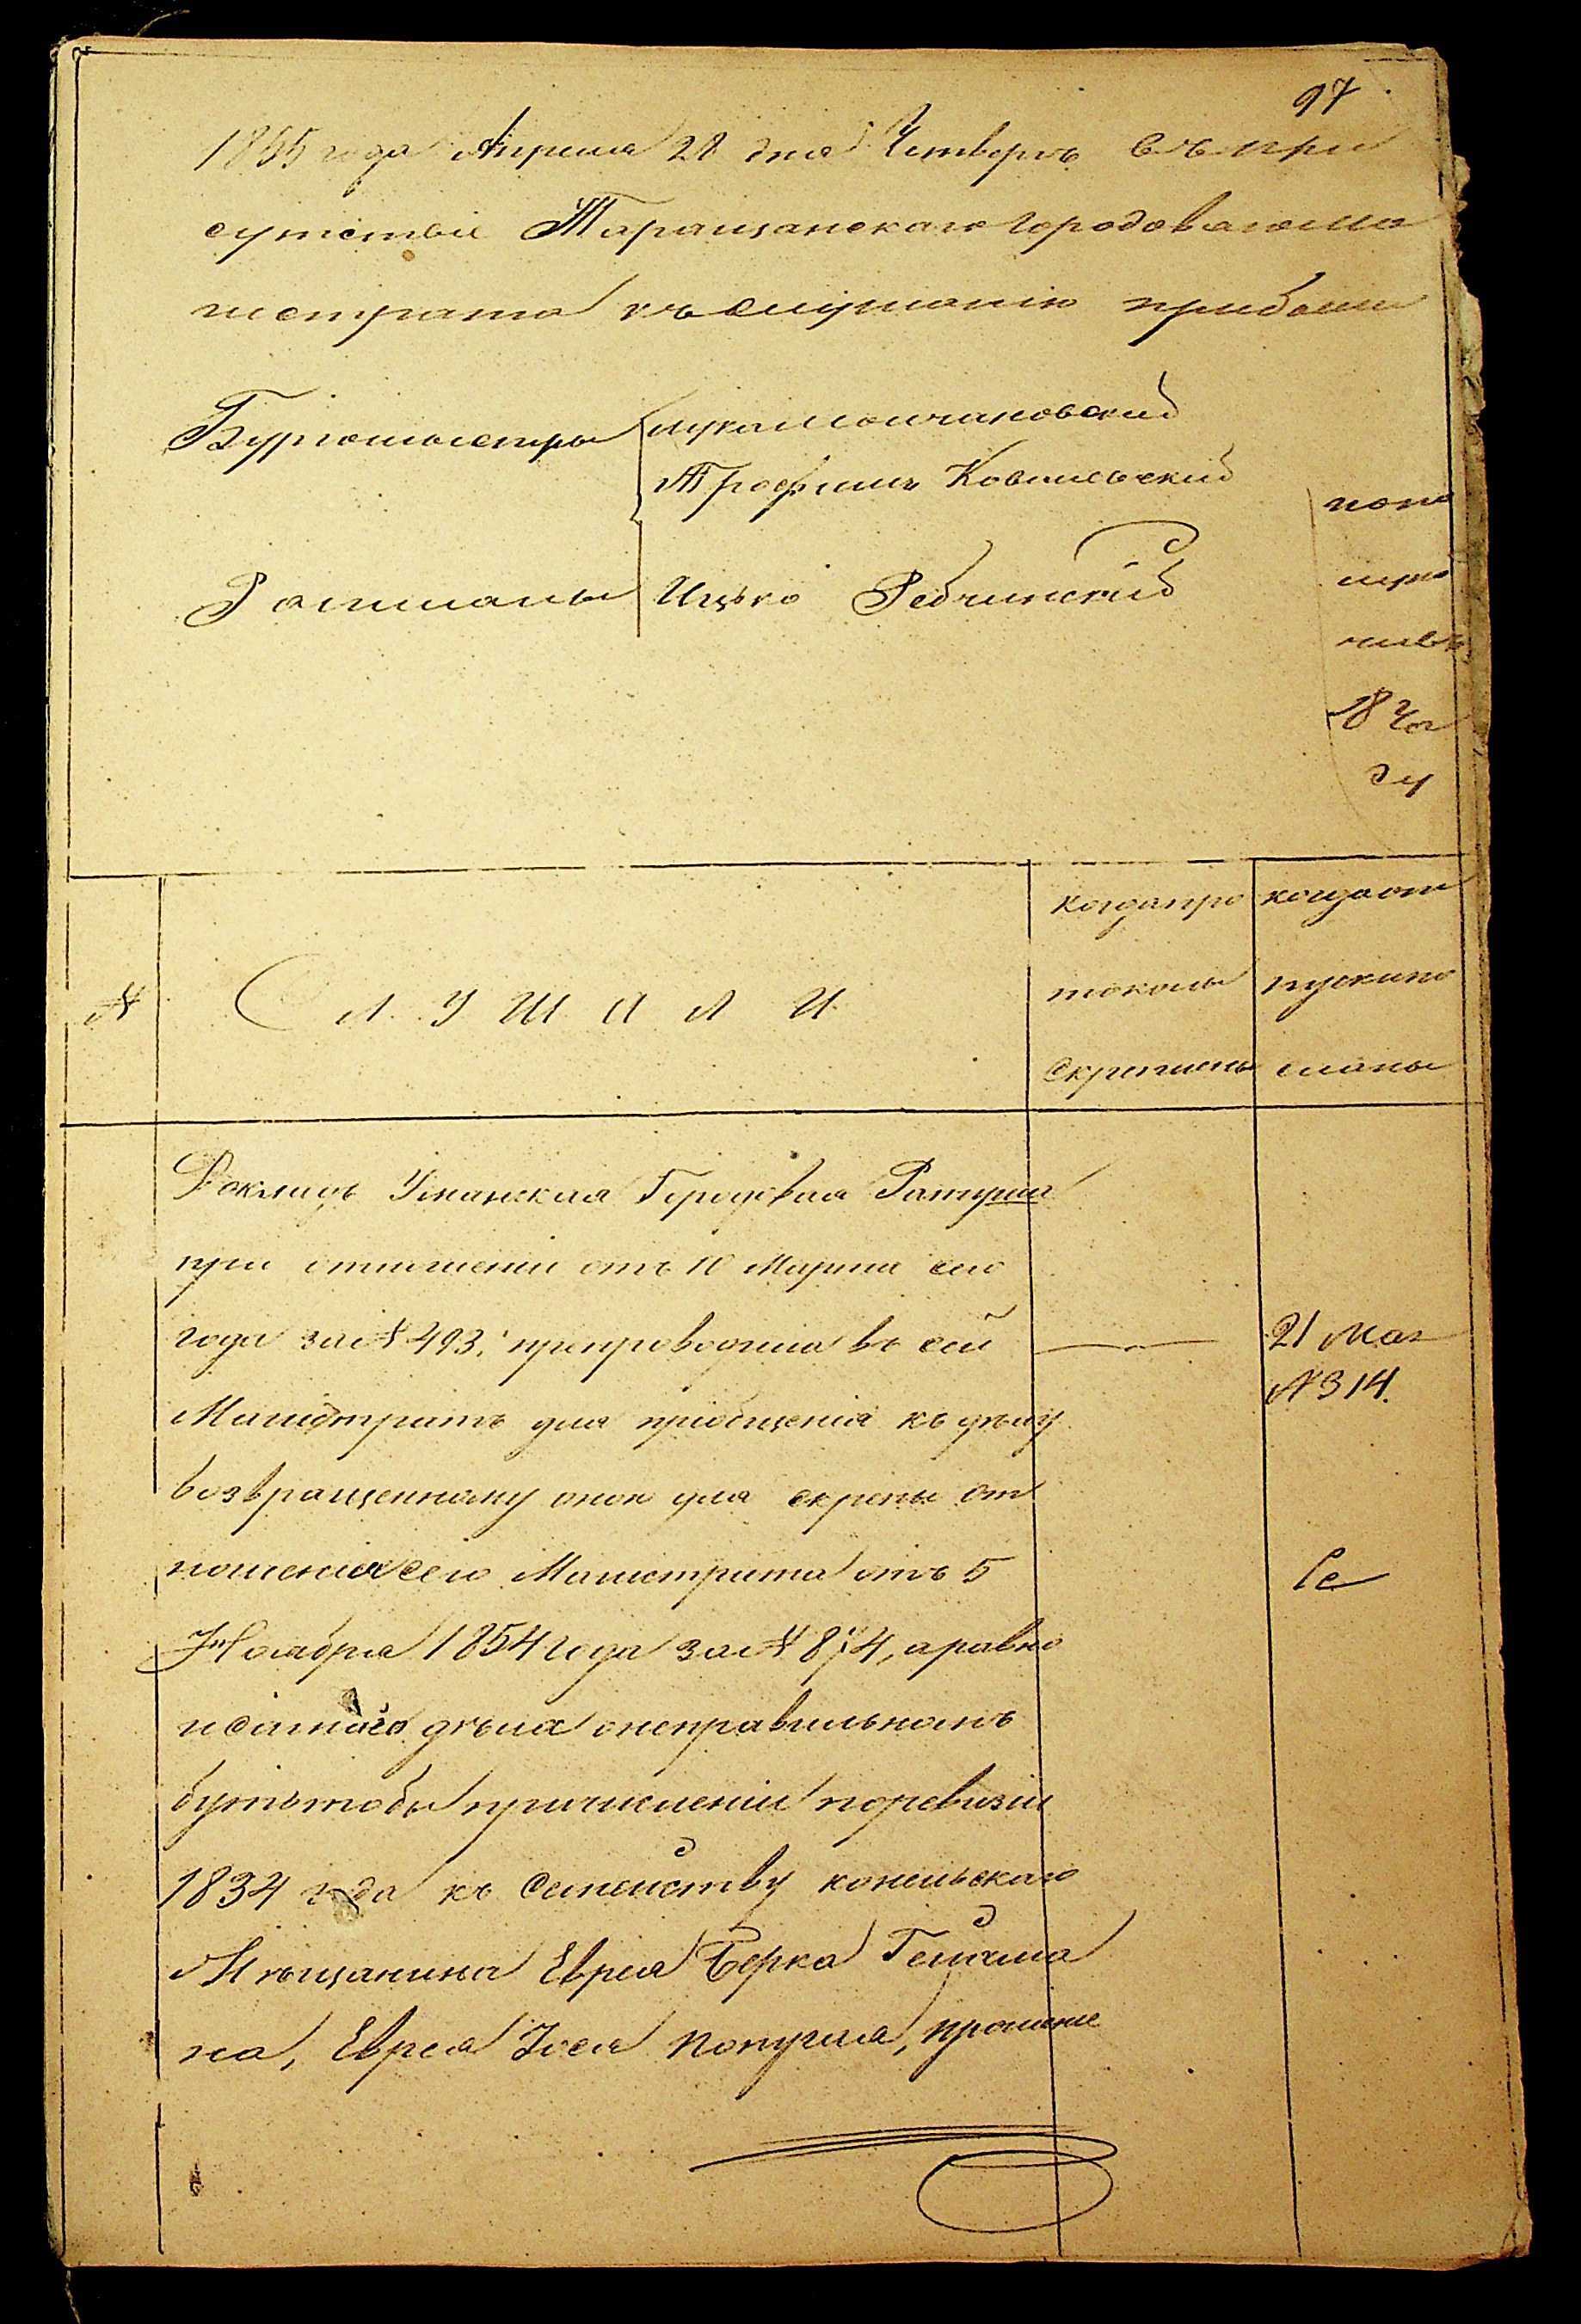 97
1855 года Апреля 28 дня Четвергъ въ при
сутствіе Таращанскаго Городоваго ма
гистрата къ слушанію прибыли
Бургомистры
Лука Мончаковскій
Трофимъ Ковальскій
Ратманы Ицько Рабчинскій
попо
луно
чивъ
18 ч
ду
№
СЛУШАЛИ
когда про
токолы
скреплены
когда от
пуски по
сланы
Докладъ Уманская Городовая Ратуша
при отношеніи отъ 10 Марта сего
года за № 493, препроводила въ сей
Магистратъ для пріобщенія къ делу
возвращенному оною для скрепы от
ношенія сего Магистрата отъ 5
Ноября 1854 года за № 874, а равно
и самаго дѣла о неправильномъ
будьтобы причисленіи по ревизіи
1834 года къ семейству конельскаго
Мѣщанина Еврея Берка Гейхма
на, Еврея Іося Попугая, прошеніе
21 Мая
№ 314.
Се